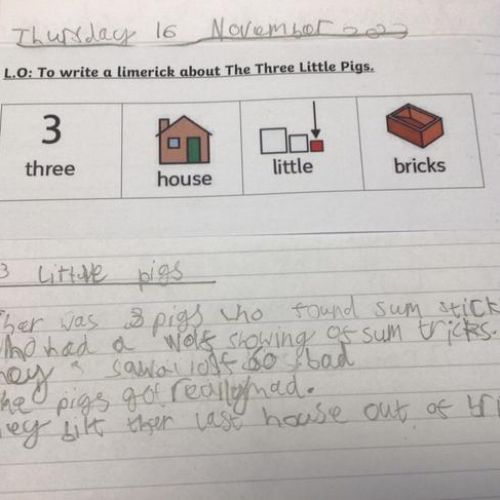 Thursday 16 November 2023
L.O: To write a limerick about The Three Little Pigs.
3
three
house
little
bricks
3 Little pigs
Ther was 3 pigs who found sum stick
had a Wolf showing of sum tricks.
bad
the pigs got really mad.
hey bilt ther last house out of bri